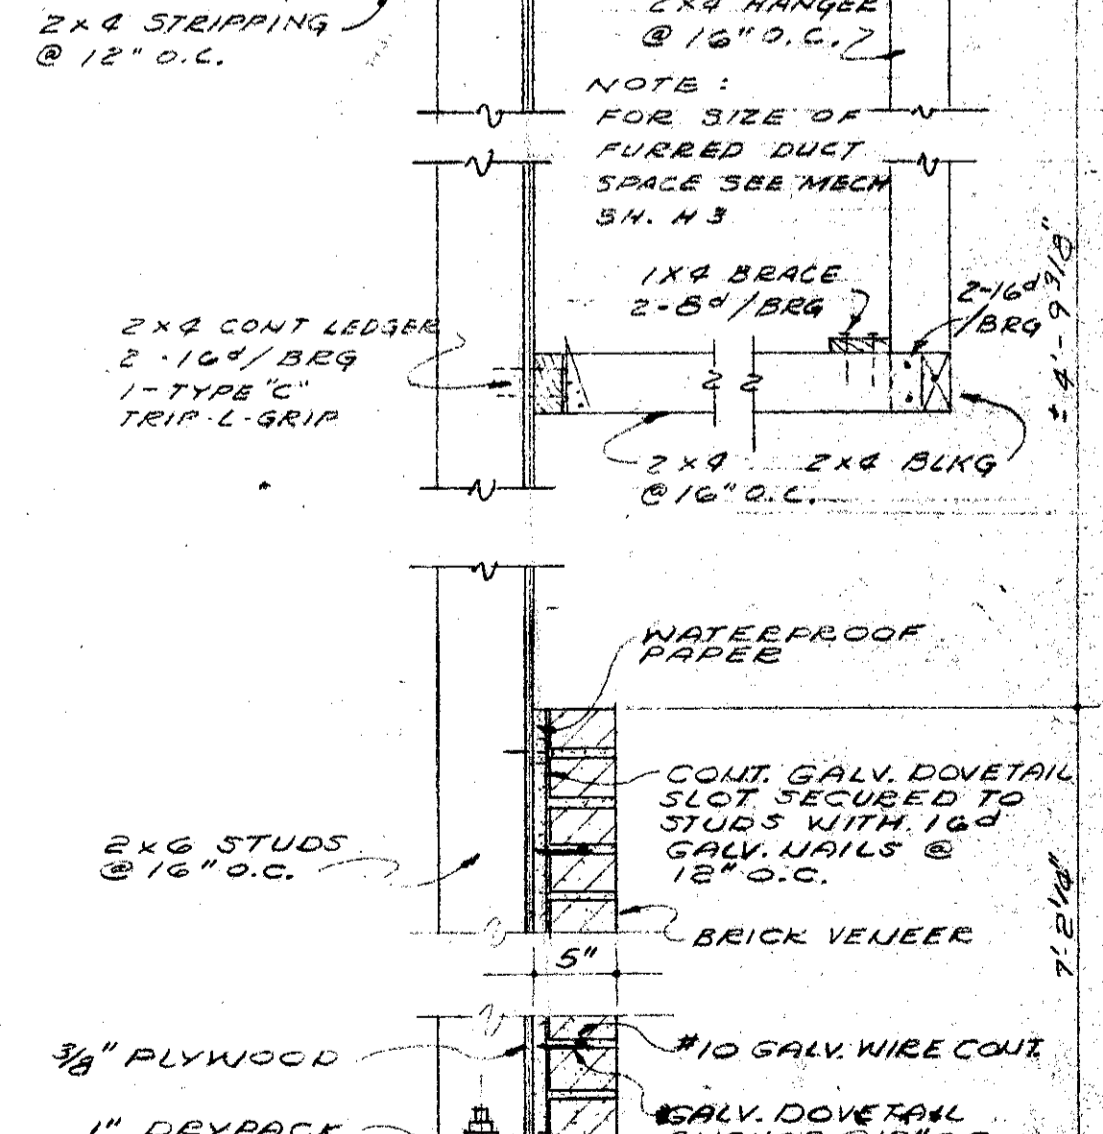 2x4 STRIPPING
@ 12" O.C.
2x4 HANGER
@ 16" O.C.
NOTE :
FOR SIZE OF
FURRED DUCT
SPACE SEE MECH
SH. H3
1X4 BRACE
2-8d/BRG
2-16d
/BRG
± 4'-9 3/8"
2x4 CONT LEDGER
2-16d/BRG
1-TYPE "C"
TRIP-L-GRIP
2x4
@ 16" O.C.
2x4 BLKG
WATERPROOF
PAPER
CONT. GALV. DOVETAIL
SLOT SECURED TO
STUDS WITH 16d
GALV. NAILS @
12" O.C.
2x6 STUDS
@ 16" O.C.
BRICK VENEER
7'-2 1/4"
5"
3/8" PLYWOOD
#10 GALV. WIRE CONT.
1" DRYPACK
GALV. DOVETAIL